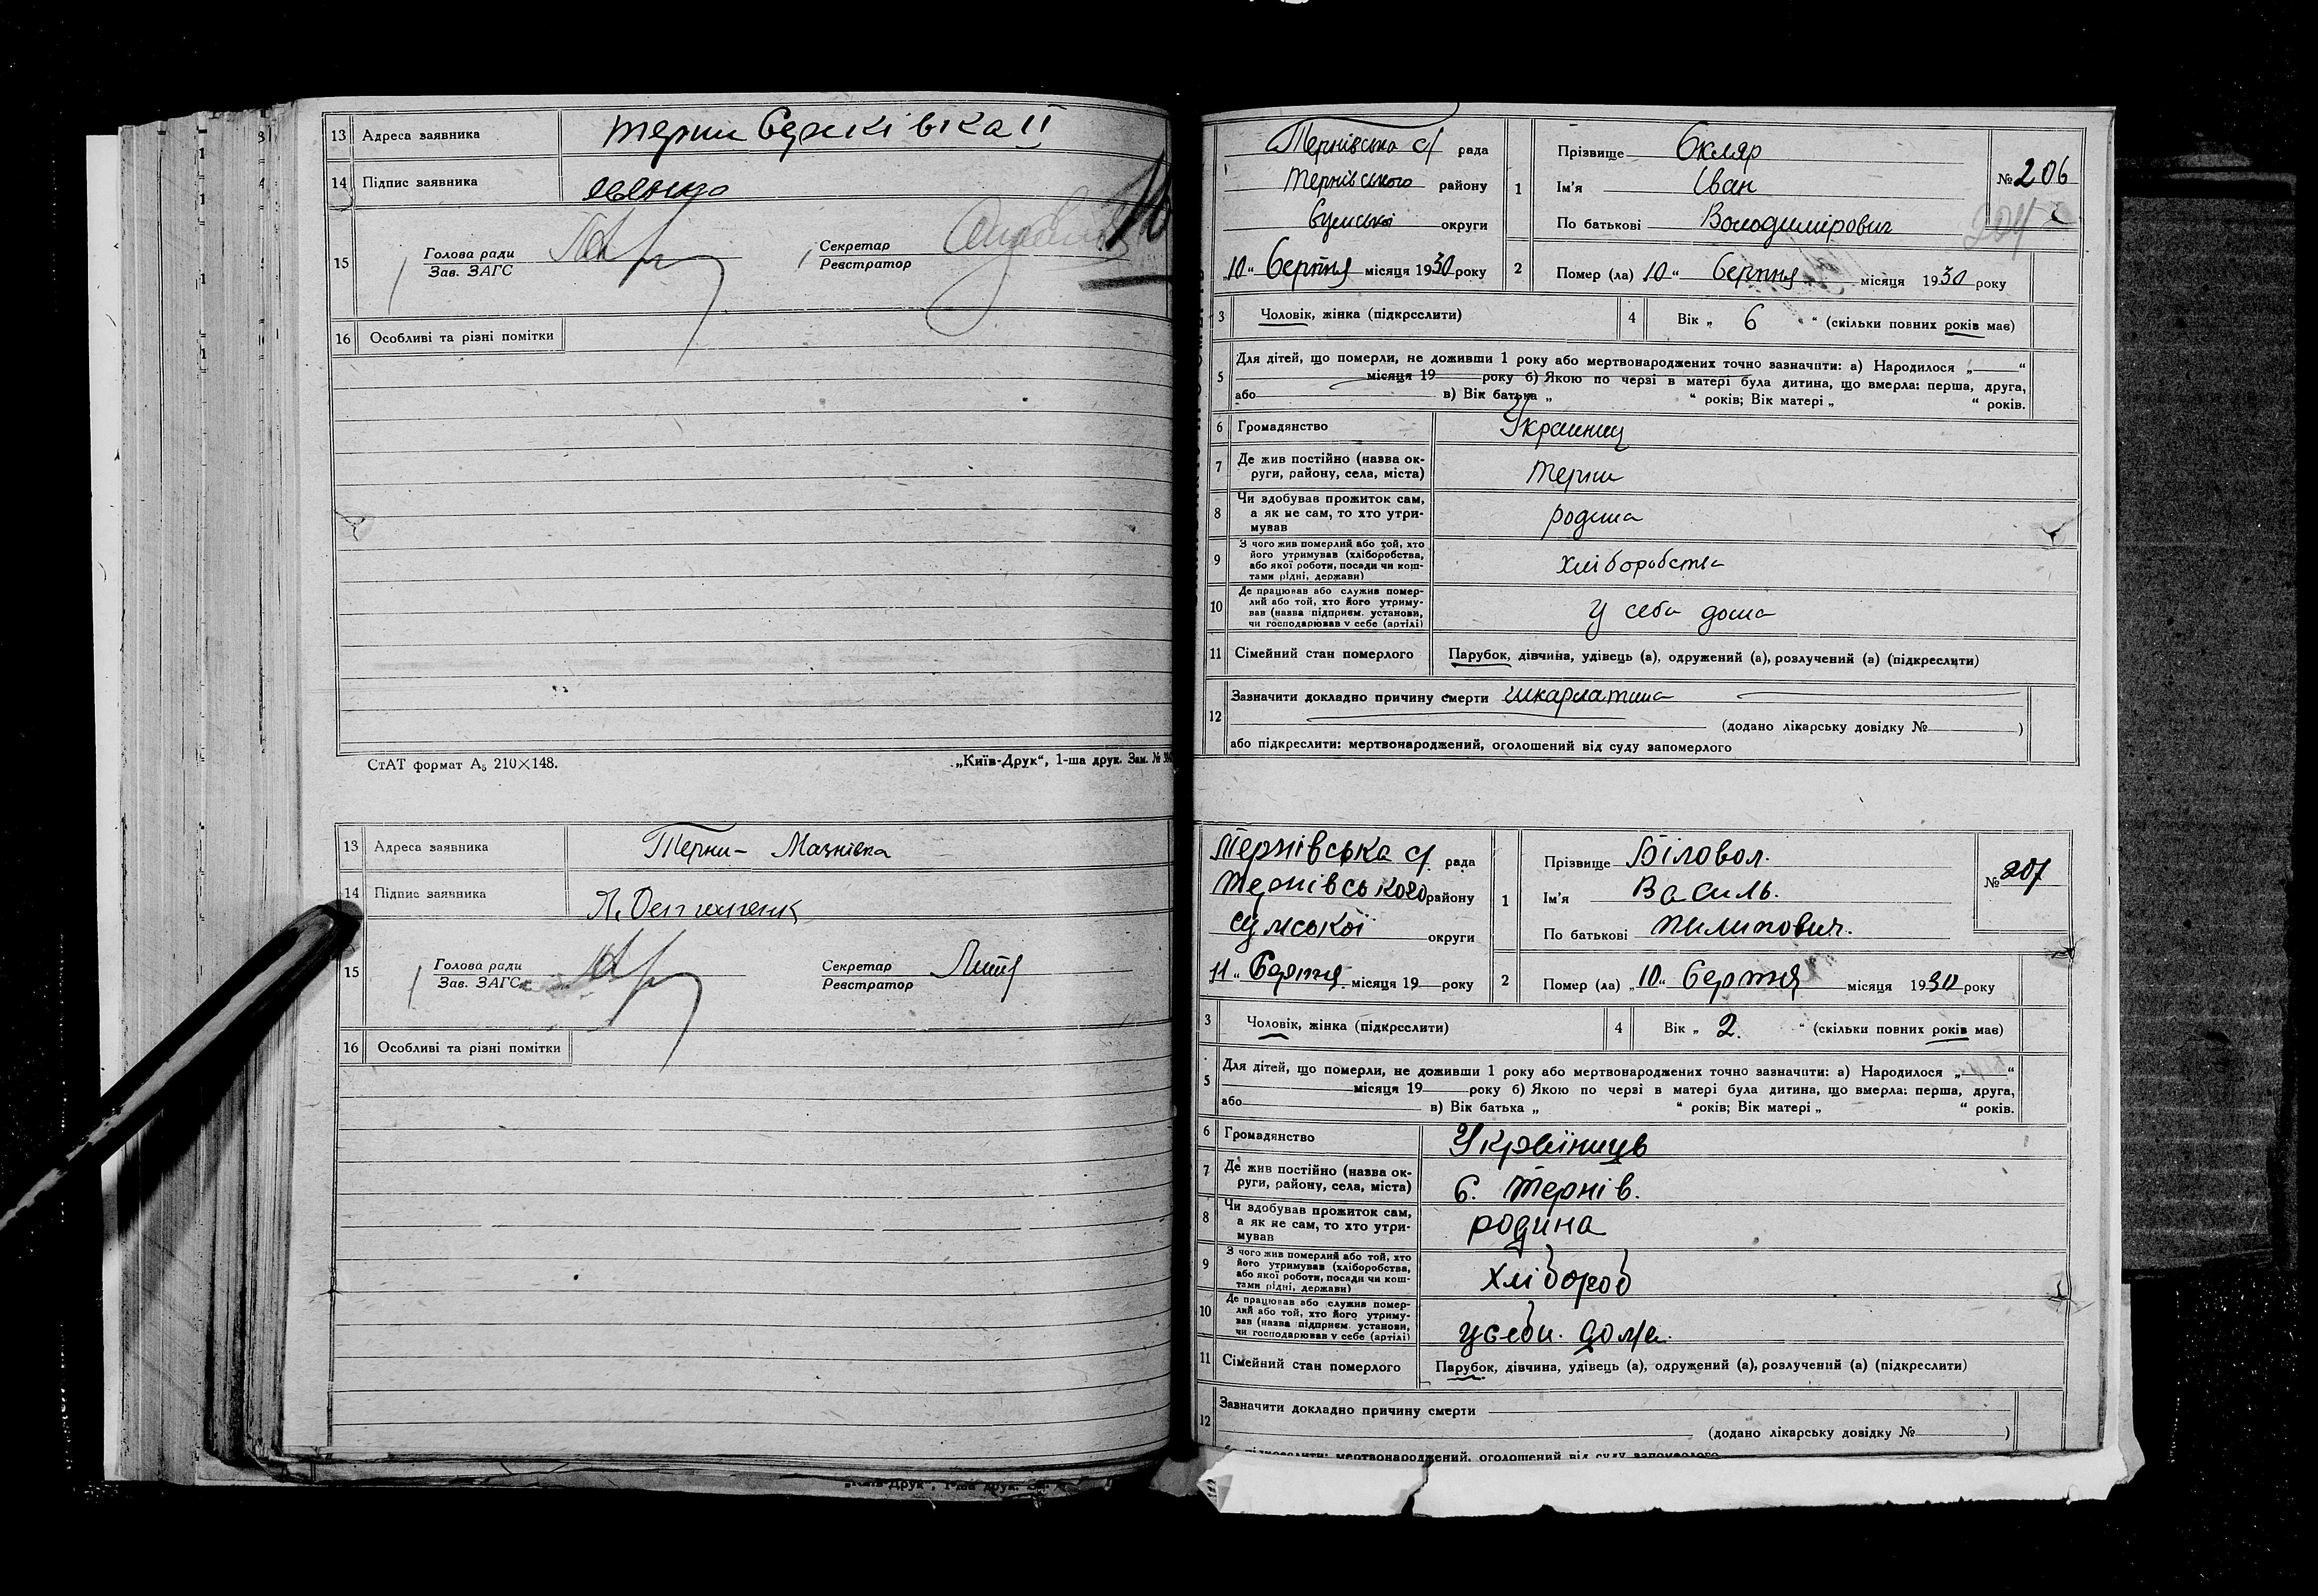 13 Адреса заявника Терни
14 Підпис заявника
15 Голова ради Секретар
Зав. ЗАГС Реєстратор
16 Особливі та різні помітки
СтАТ формат А₅ 210×148. „Київ-Друк“, 1-ша друк. Зам. №
13 Адреса заявника Терни – Мазнівка
14 Підпис заявника
15 Голова ради Секретар
Зав. ЗАГС Реєстратор
16 Особливі та різні помітки
Тернівська с/ рада
Тернівського району
Сумської округи
„10“ Серпня місяця 1930 року
1 Прізвище Скляр
Ім'я Іван
По батькові Володимірович
№ 206
2 Помер (ла) 10“ Серпня місяця 1930 року
3 Чоловік, жінка (підкреслити) 4 Вік „ 6 “ (скільки повних років має)
5 Для дітей, що померли, не доживши 1 року або мертвонароджених точно зазначити: а) Народилося „ “
місяця 19 року б) Якою по черзі в матері була дитина, що вмерла: перша, друга,
або в) Вік батька „ “ років; Вік матері „ “ років.
6 Громадянство Украинец
7 Де жив постійно (назва ок-
руги, району, села, міста) Терни
8 Чи здобував прожиток сам,
а як не сам, то хто утри-
мував родина
9 З чого жив померлий або той, хто
його утримував (хліборобства,
або якої роботи, посади чи кош-
тами рідні, держави) хліборобства
10 Де працював або служив помер-
лий або той, хто його утриму-
вав (назва підприєм. установи,
чи господарював у себе (артілі) у себе дома
11 Сімейний стан померлого Парубок, дівчина, удівець (а), одружений (а), розлучений (а) (підкреслити)
12 Зазначити докладно причину смерти шкарлатина
(додано лікарську довідку № )
або підкреслити: мертвонароджений, оголошений від суду запомерлого
Тернівська с/ рада
Тернівського району
Сумської округи
11“ Серпня місяця 19 року
1 Прізвище Біловол.
Ім'я Василь.
По батькові Пилипович.
№ 207
2 Помер (ла) „10“ Серпня місяця 1930 року
3 Чоловік, жінка (підкреслити) 4 Вік „ 2. “ (скільки повних років має)
5 Для дітей, що померли, не доживши 1 року або мертвонароджених точно зазначити: а) Народилося „ “
місяця 19 року б) Якою по черзі в матері була дитина, що вмерла: перша, друга,
або в) Вік батька „ “ років; Вік матері „ “ років.
6 Громадянство Українець
7 Де жив постійно (назва ок-
руги, району, села, міста) С. Тернів.
8 Чи здобував прожиток сам,
а як не сам, то хто утри-
мував родина
9 З чого жив померлий або той, хто
його утримував (хліборобства,
або якої роботи, посади чи кош-
тами рідні, держави) хлібороб
10 Де працював або служив помер-
лий або той, хто його утриму-
вав (назва підприєм. установи,
чи господарював у себе (артілі) у себи. дома.
11 Сімейний стан померлого Парубок, дівчина, удівець (а), одружений (а), розлучений (а) (підкреслити)
12 Зазначити докладно причину смерти
(додано лікарську довідку № )
підкреслити: мертвонароджений, оголошений від суду запомерлого